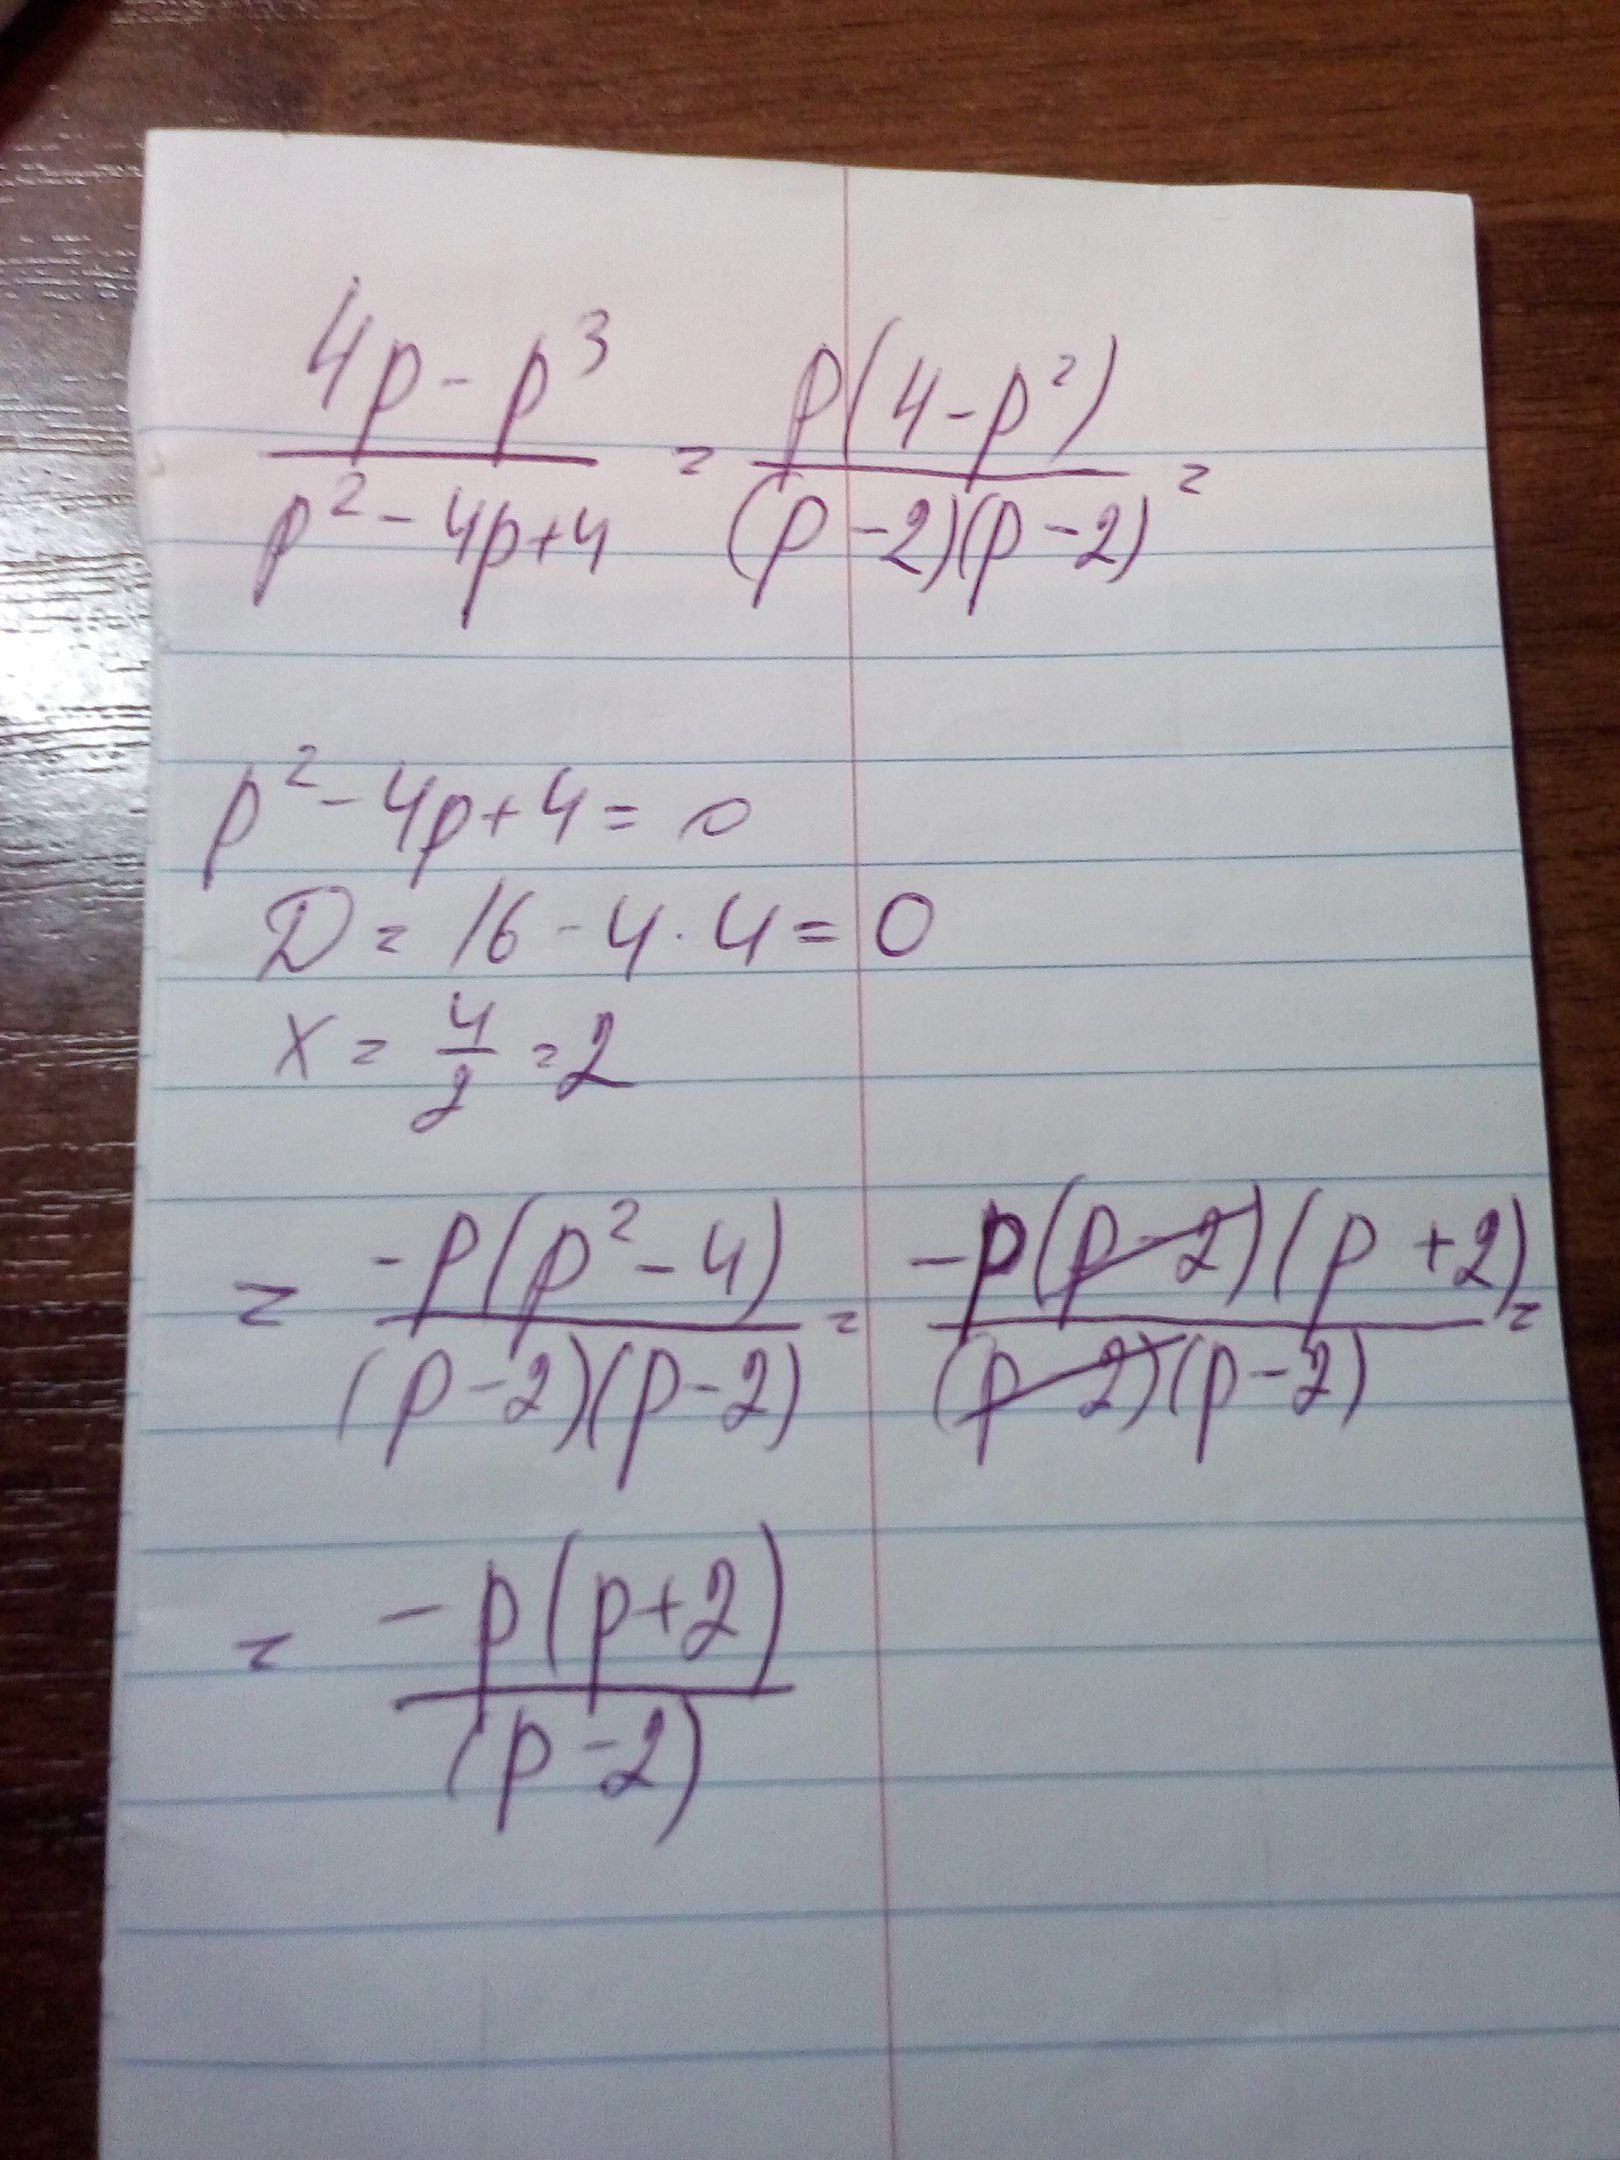 (4p - p³)/(p² - 4p + 4) = p(4 - p²)/((p - 2)(p - 2)) =
p² - 4p + 4 = 0
D = 16 - 4 · 4 = 0
x = 4/2 = 2
= -p(p² - 4)/((p - 2)(p - 2)) = -p(p - 2)(p + 2)/((p - 2)(p - 2)) =
= -p(p + 2)/(p - 2)